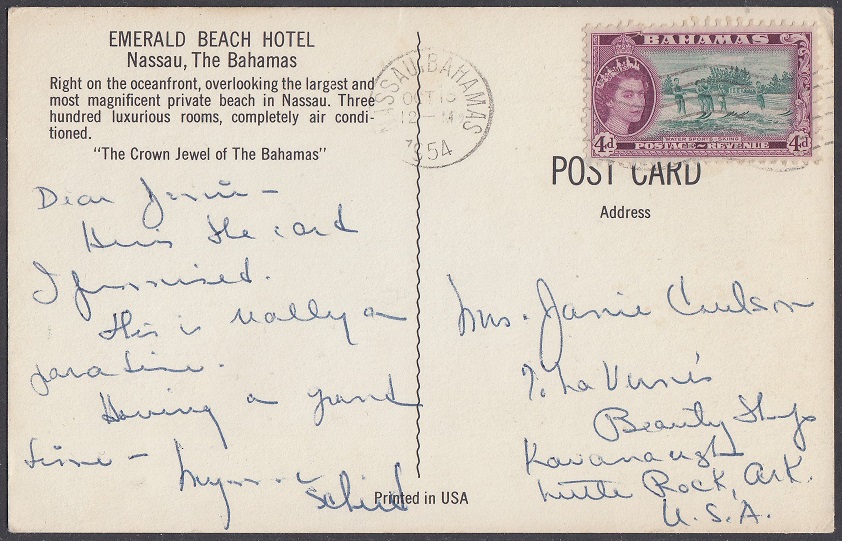 EMERALD BEACH HOTEL
Nassau, The Bahamas
Right on the oceanfront, overlooking the largest and
most magnificent private beach in Nassau. Three
hundred luxurious rooms, completely air condi-
tioned.
"The Crown Jewel of The Bahamas"
Dear Janie –
Here's the card
I promised.
This is really a
paradise.
Having a grand
time –
Printed in USA
NASSAU BAHAMAS
OCT
12 – M
1954
BAHAMAS
WATER SPORTS - SKIING
4d POSTAGE~REVENUE 4d
POST CARD
Address
Mrs. Janie
% La Verne's
Beauty Shop
Kavanaugh
Little Rock, Ark.
U.S.A.